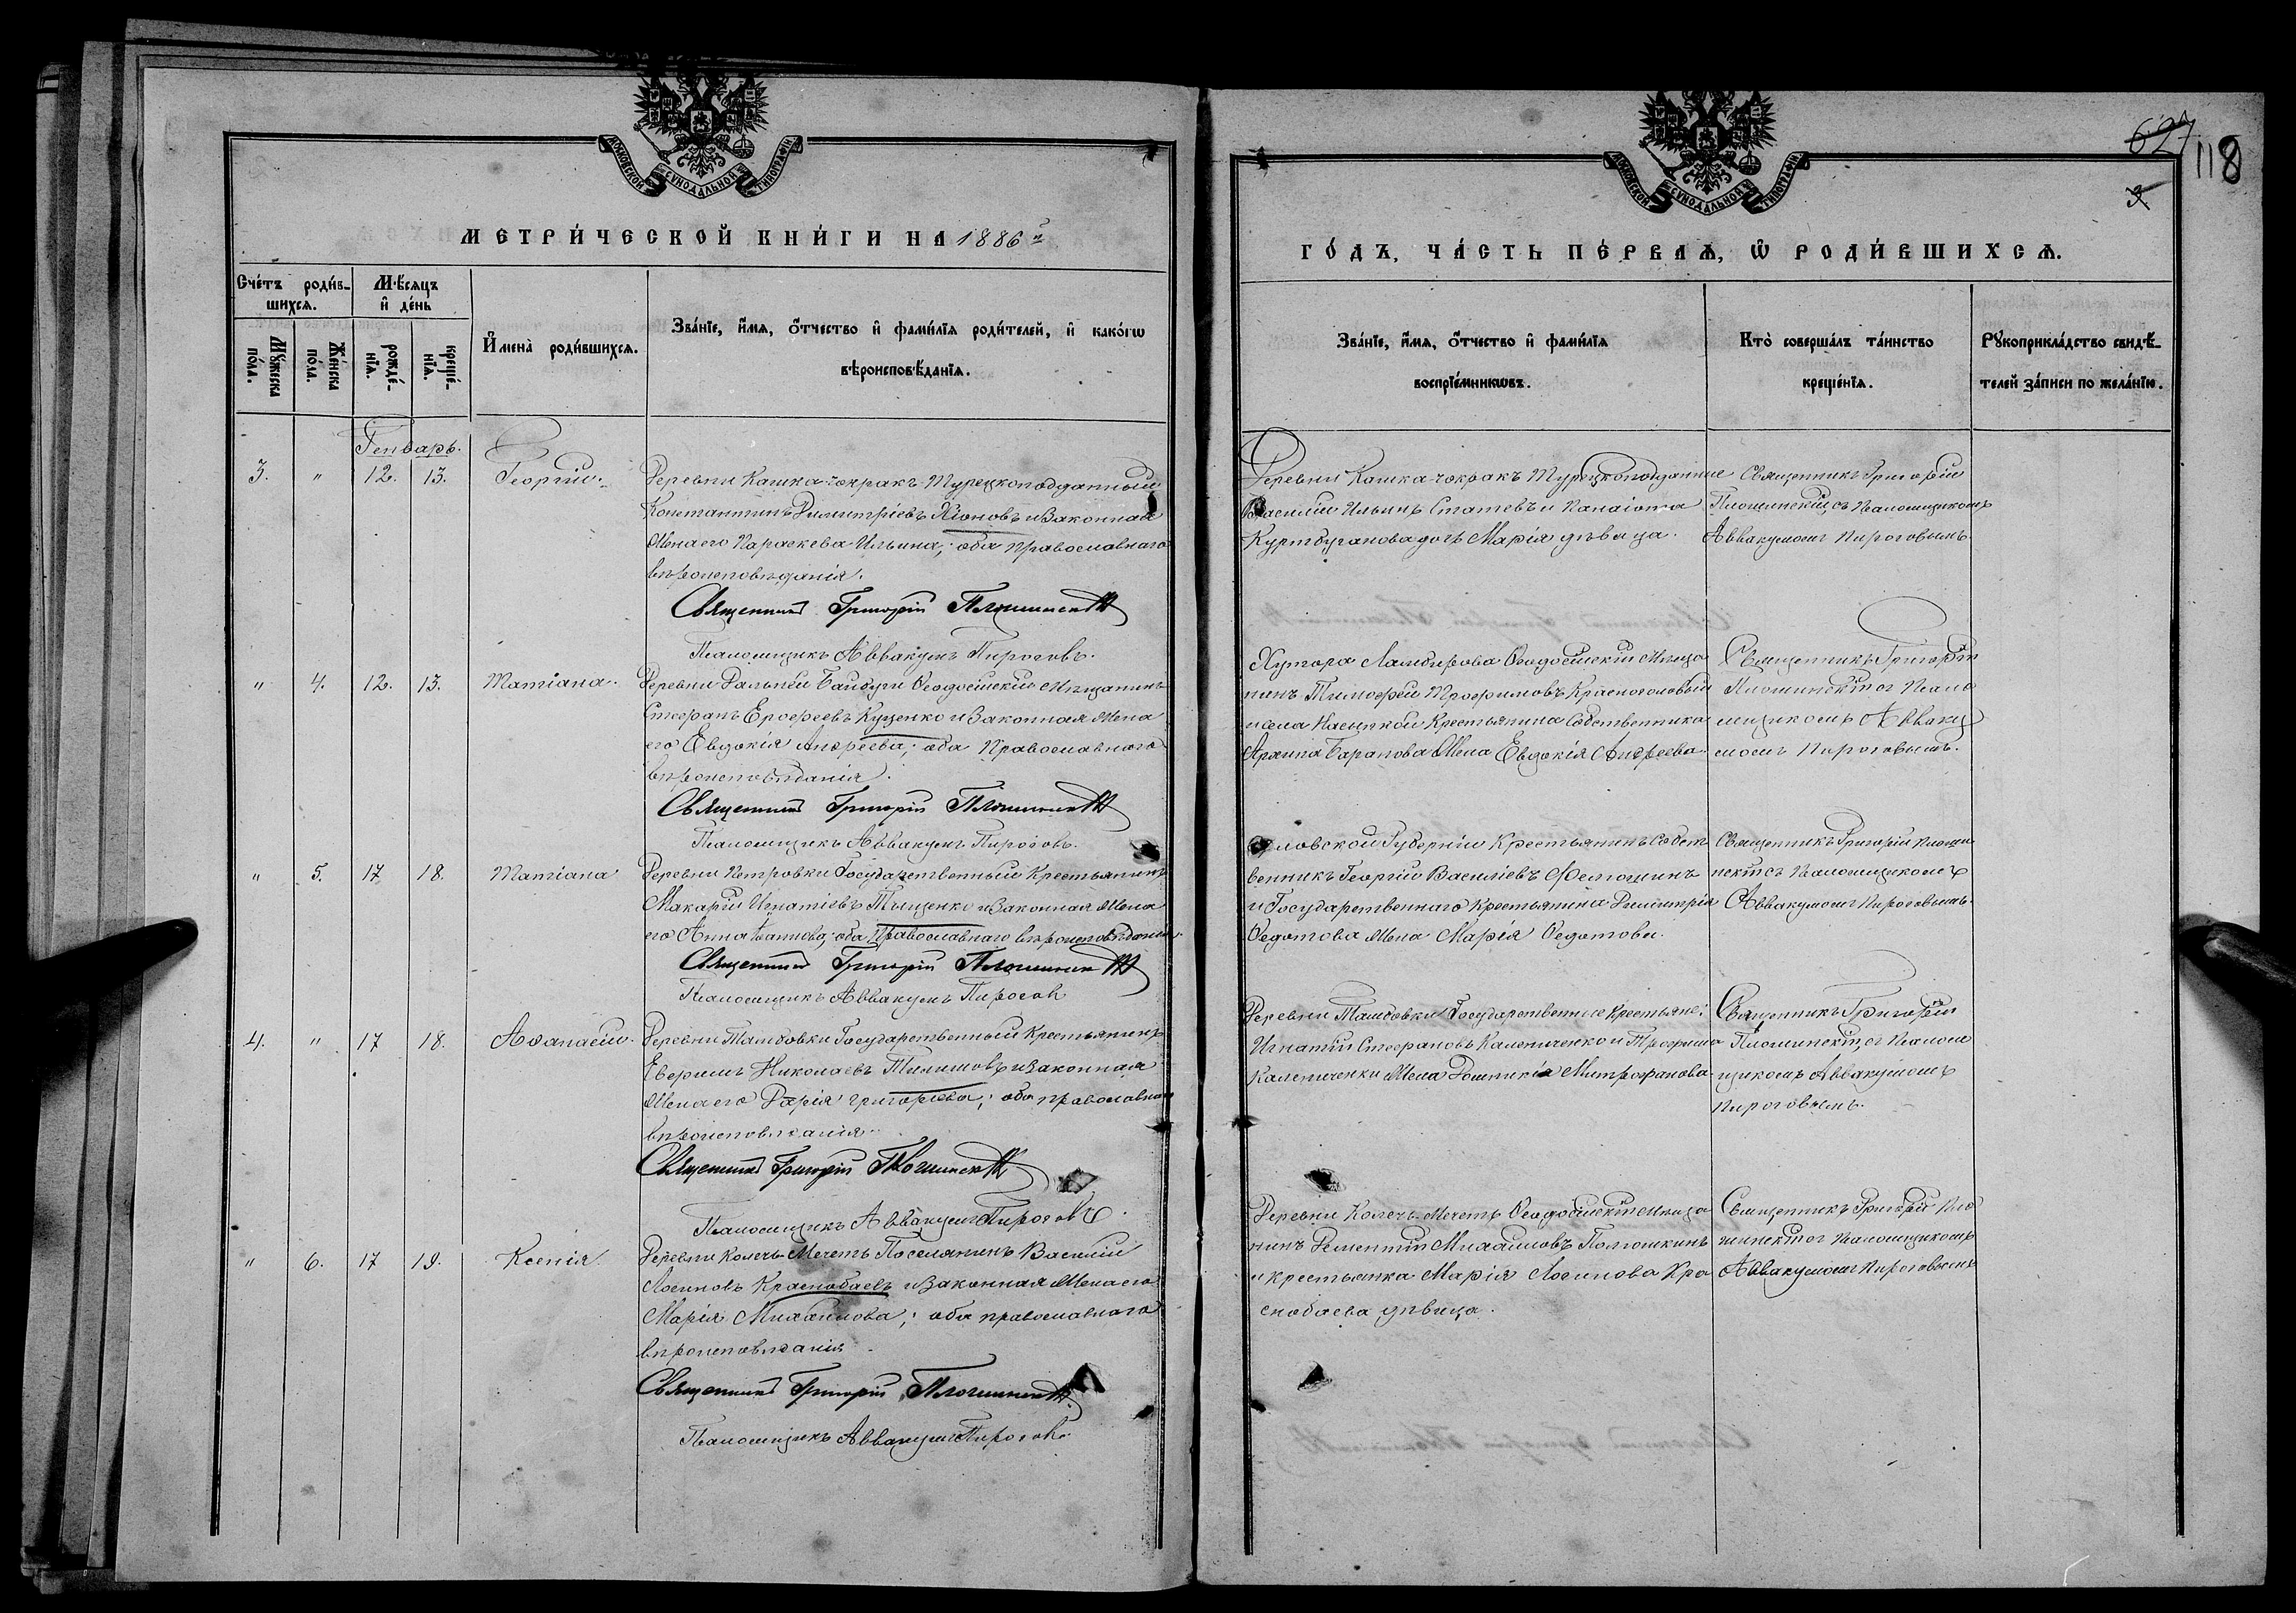 МОСКОВСКОЙ СѴНОДАЛЬНОЙ ТИПОГРАФІИ
МЕТРИ́ЧЕСКОЙ КНИ́ГИ НА 1886й
Сче́тъ роди́в-
шихсѧ.
Мѣ́сѧцъ
и҆ де́нь
Мꙋ́жеска
по́ла.
Же́нска
по́ла.
рожде́-
нїѧ.
креще́-
нїѧ.
И҆мена̀ роди́вшихсѧ.
Зва́нїе, и҆́мѧ, ѻ҆́тчество и҆ фами́лїѧ роди́телей, и҆ како́гѡ
вѣроисповѣ́данїѧ.
Генварь.
3. " 12. 13. Георгій.
Деревни Кашка-чокракъ Турецкоподданный
Константинъ Димитріевъ Хіоновъ и законная
жена его Параскева Ильина; оба православнаго
вѣроисповѣданія.
Священникъ Григорій Плошинскій
Псаломщикъ Аввакумъ Пироговъ.
" 4. 12. 13. Татіана.
Деревни Дальней Байбуги Ѳеодосійскій мѣщанинъ
Стефанъ Ерофеевъ Куценко и законная жена
его Евдокія Андреева; оба Православнаго
вѣроисповѣданія.
Священникъ Григорій Плошинскій
Псаломщикъ Аввакумъ Пироговъ.
" 5. 17 18. Татіана
Деревни Петровки Государственный Крестьянинъ
Макарій Игнатіевъ Тыщенко и законная жена
его Анна Іоаннова; оба Православнаго вѣроисповѣданія.
Священникъ Григорій Плошинскій
Псаломщикъ Аввакумъ Пироговъ
4. " 17 18. Аѳанасій.
Деревни Тамбовки Государственный Крестьянинъ
Евфимъ Николаевъ и законная
жена его Дарія Григорьева; оба православнаго
вѣроисповѣданія.
Священникъ Григорій Плошинскій
Псаломщикъ Аввакумъ Пироговъ.
" 6. 17 19. Ксенія
Деревни Колечь-Мечеть Поселянинъ Василій
Логиновъ Краснобаевъ и законная жена его
Марія Михайлова; оба православнаго
вѣроисповѣданія.
Священникъ Григорій Плошинскій
Псаломщикъ Аввакумъ Пироговъ.
МОСКОВСКОЙ СѴНОДАЛЬНОЙ ТИПОГРАФІИ
627
118
3
ГО́ДЪ, ЧА́СТЬ ПЕ́РВАѦ, Ѡ҆ РОДИ́ВШИХСѦ.
Зва́нїе, и҆́мѧ, ѻ҆́тчество и҆ фами́лїѧ
воспрїе́мникѡвъ.
Кто̀ соверша́лъ та́инство
креще́нїѧ.
Рꙋкоприкла́дство свидѣ́-
телей за́писи по жела́нїю.
Деревни Кашка-чокракъ Турецкоподданные
Василій Ильинъ Статевъ и Панаіота
Куртбуганова дочь Марія дѣвица.
Священникъ Григорій
Плошинскій съ Псаломщикомъ
Аввакумомъ Пироговымъ.
Хутора Ѳеодосійскій мѣща
нинъ Тимофей Трофимовъ Красноголовый
и села Насыпкой Крестьянина Собственника
Баранова жена Евдокія Андреева.
Священникъ Григорій
Плошинскій съ Псало
мщикомъ Авваку
момъ Пироговымъ.
Орловской Губерніи Крестьянинъ Собст
венникъ Георгій Василіевъ
и Государственнаго Крестьянина Димитрія
Ѳедотова жена Марія Ѳедотова.
Священникъ Григорій Плоши
нскій съ Псаломщикомъ
Аввакумомъ Пироговымъ.
Деревни Тамбовки Государственные Крестьяне:
Игнатій Стефановъ Калениченко и Трофима
Калениченки жена Домникія Митрофанова.
Священникъ Григорій
Плошинскій, съ Псалом
щикомъ Аввакумомъ
Пироговымъ.
Деревни Колечь-Мечеть Ѳеодосійскій мѣща
нинъ Дементій Михайловъ
и крестьянка Марія Логинова Кра
снобаева дѣвица.
Священникъ Григорій Пло
шинскій съ Псаломщикомъ
Аввакумомъ Пироговымъ